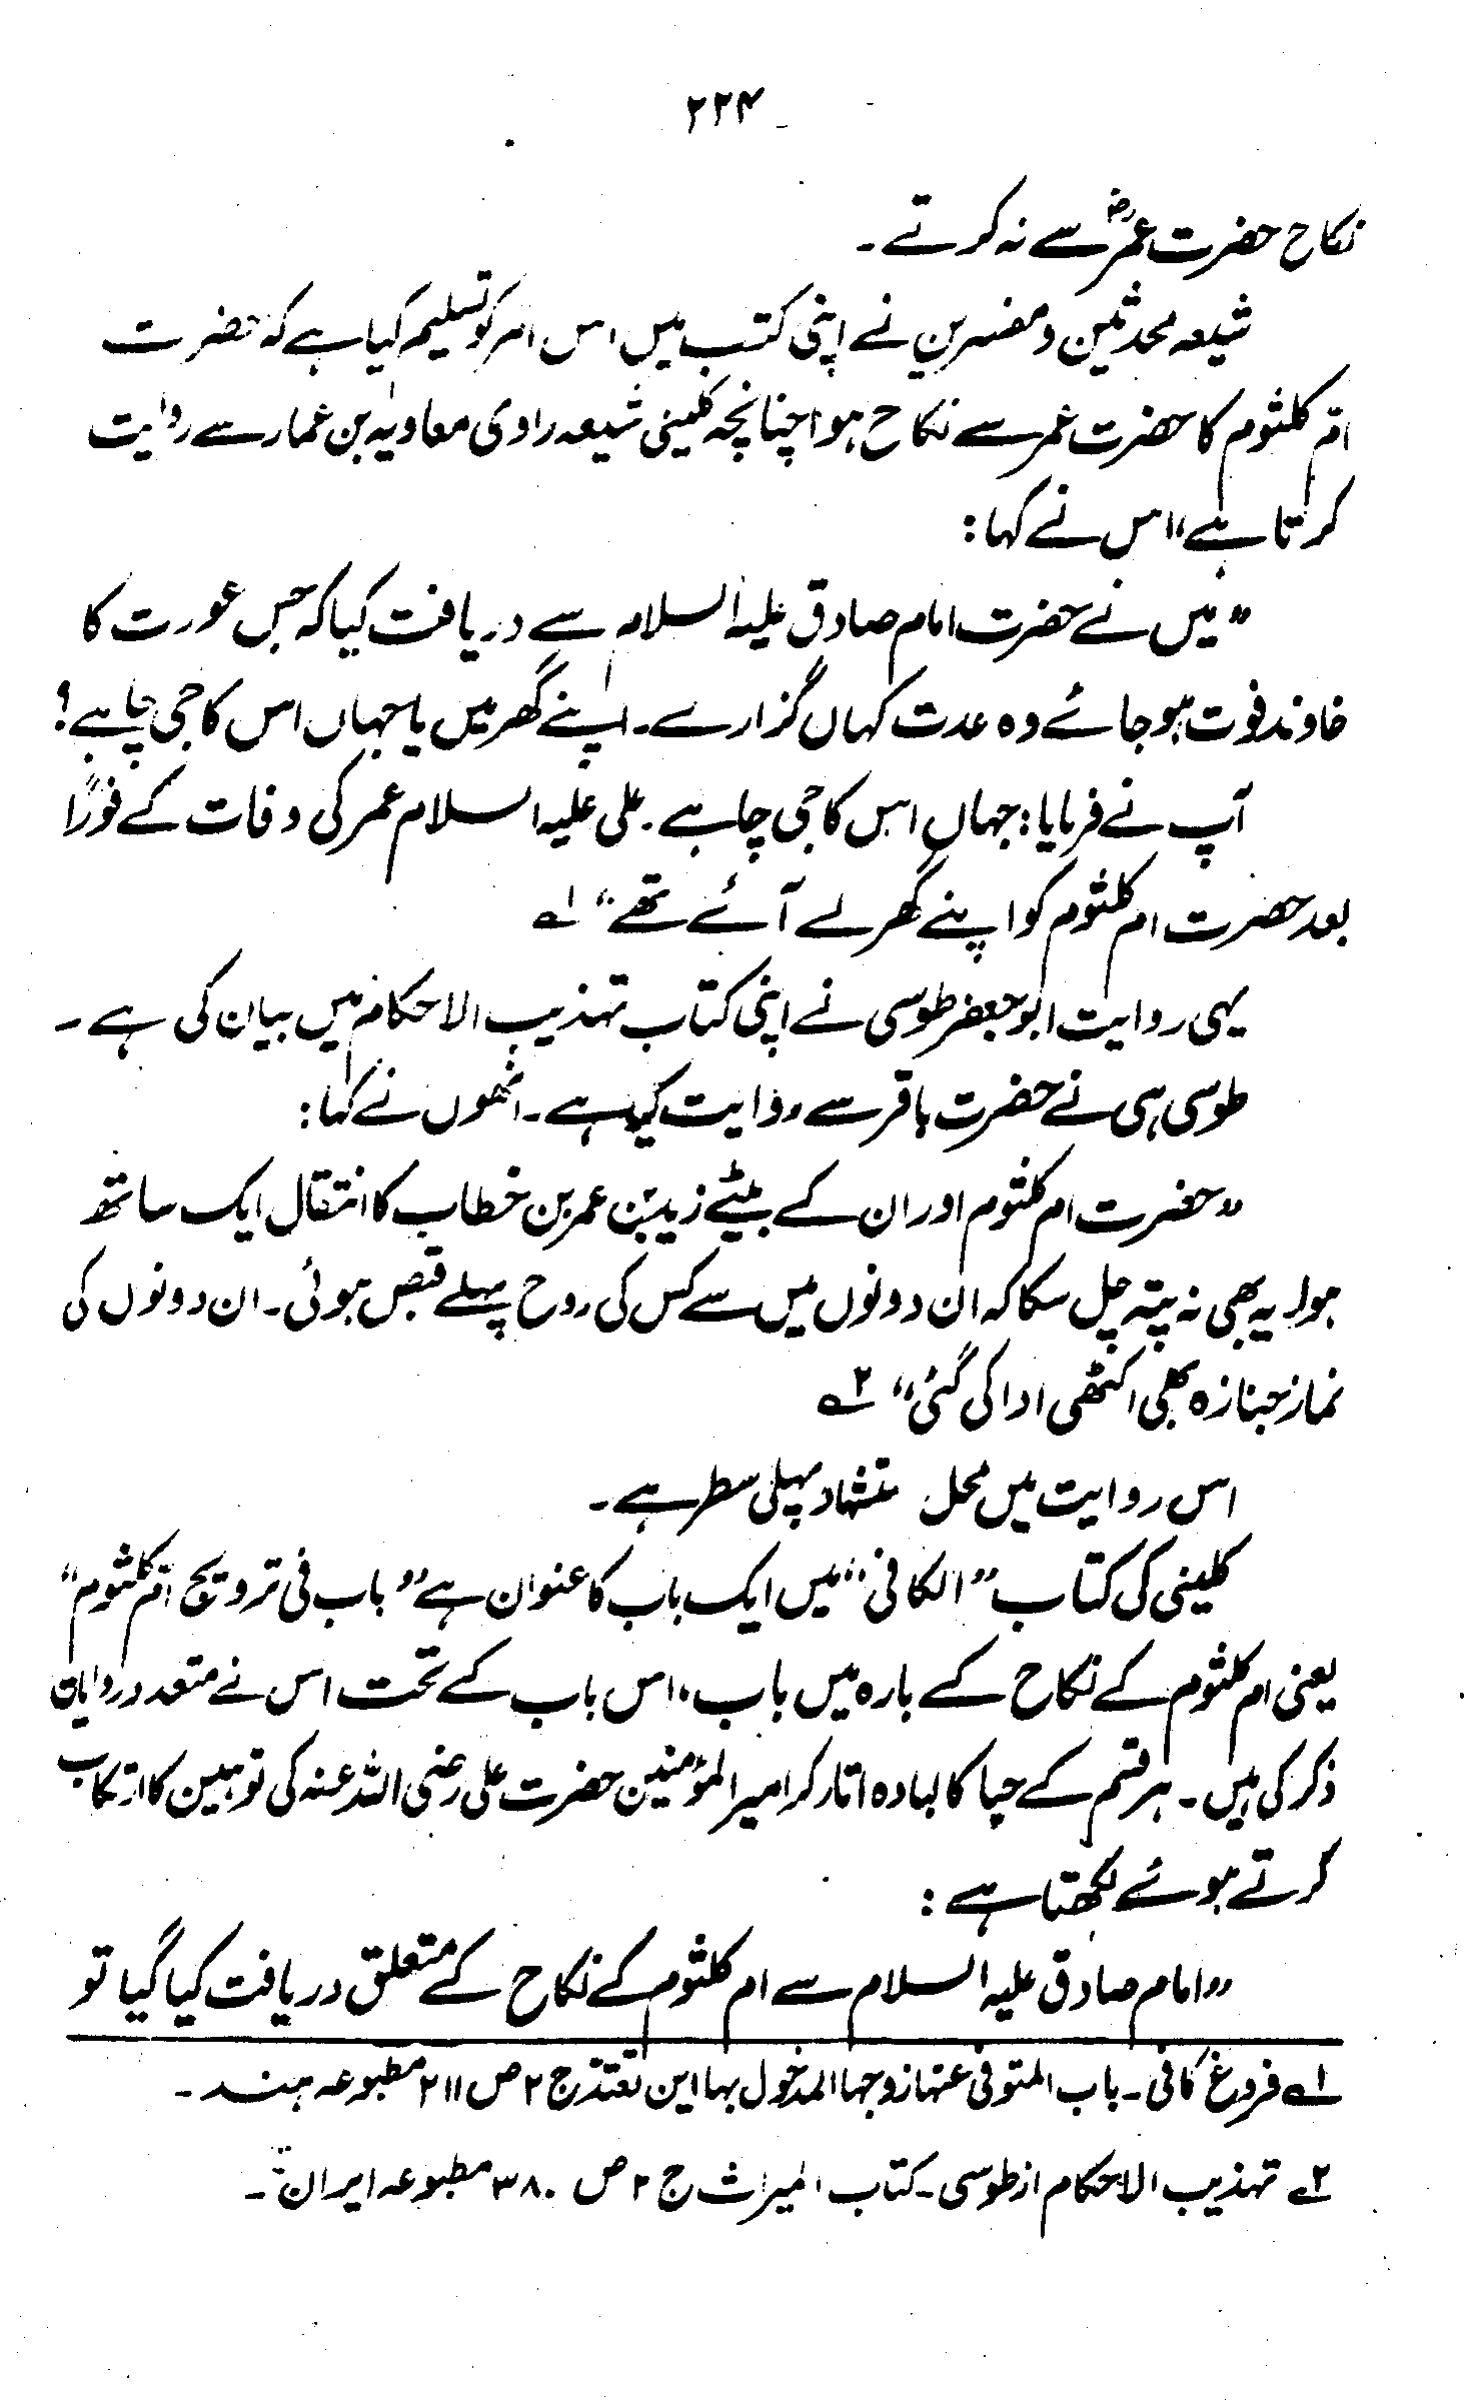 ۲۲۴
نکاح حضرت عمرؓ سے نہ کرتے۔
شیعہ محدثین و مفسرین نے اپنی کتب میں اس امر کو تسلیم کیا ہے کہ حضرت
ام کلثوم کا حضرت عمر سے نکاح ہوا چنانچہ کلینی شیعہ راوی معاویہ بن عمار سے روایت
کرتا ہے، اس نے کہا:
”میں نے حضرت امام صادق علیہ السلام سے دریافت کیا کہ جس عورت کا
خاوند فوت ہو جائے وہ عدت کہاں گزارے۔ اپنے گھر میں یا جہاں اس کا جی چاہے؟
آپ نے فرمایا: جہاں اس کا جی چاہے۔ علی علیہ السلام عمر کی وفات کے فوراً
بعد حضرت ام کلثوم کو اپنے گھر لے آئے تھے“ ۱؎
یہی روایت ابو جعفر طوسی نے اپنی کتاب تہذیب الاحکام میں بیان کی ہے۔
طوسی ہی نے حضرت باقر سے روایت کیا ہے۔ انھوں نے کہا:
”حضرت ام کلثوم اور ان کے بیٹے زید بن عمر بن خطاب کا انتقال ایک ساتھ
ہوا۔ یہ بھی نہ پتہ چل سکا کہ ان دونوں میں سے کس کی روح پہلے قبض ہوئی۔ ان دونوں کی
نماز جنازہ بھی اکٹھی ادا کی گئی“ ۲؎
اس روایت میں محل ستشہاد پہلی سطر ہے۔
کلینی کی کتاب ”الکافی“ میں ایک باب کا عنوان ہے ”باب فی تزویج ام کلثوم“
یعنی ام کلثوم کے نکاح کے بارہ میں باب، اس باب کے تحت اس نے متعدد روایات
ذکر کی ہیں۔ ہر قسم کے حیا کا لبادہ اتار کر امیر المؤمنین حضرت علی رضی اللہ عنہ کی توہین کا ارتکاب
کرتے ہوئے لکھتا ہے:
”امام صادق علیہ السلام سے ام کلثوم کے نکاح کے متعلق دریافت کیا گیا تو
۱؎ فروع کافی۔ باب المتوفی عنہا زوجہا المدخول بہا این تعتد ج ۲ ص ۲۱۱ مطبوعہ ہند۔
۲؎ تہذیب الاحکام از طوسی۔ کتاب المیراث ج ۲ ص ۳۸۰ مطبوعہ ایران۔